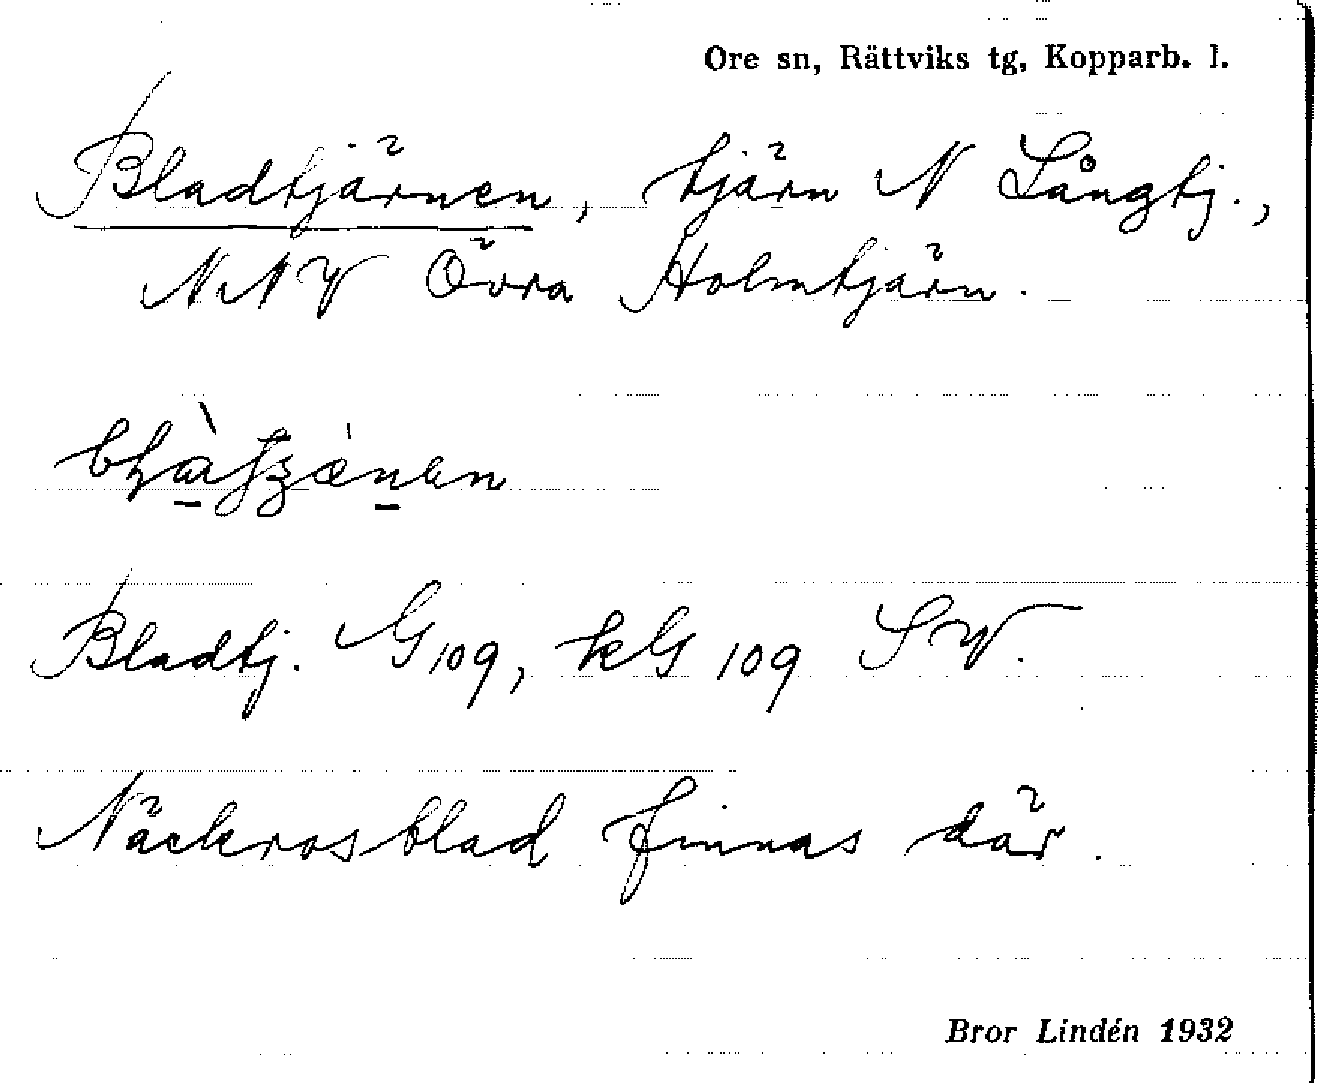 Ore sn, Rättviks tg, Kopparb. l.
Bladtjärnen, tjärn N Långtj.,
NNV Övra Holmtjärn.
Bladtj. G 109, kG 109 SV.
Näckrosblad finnas där.
Bror Lindén 1932